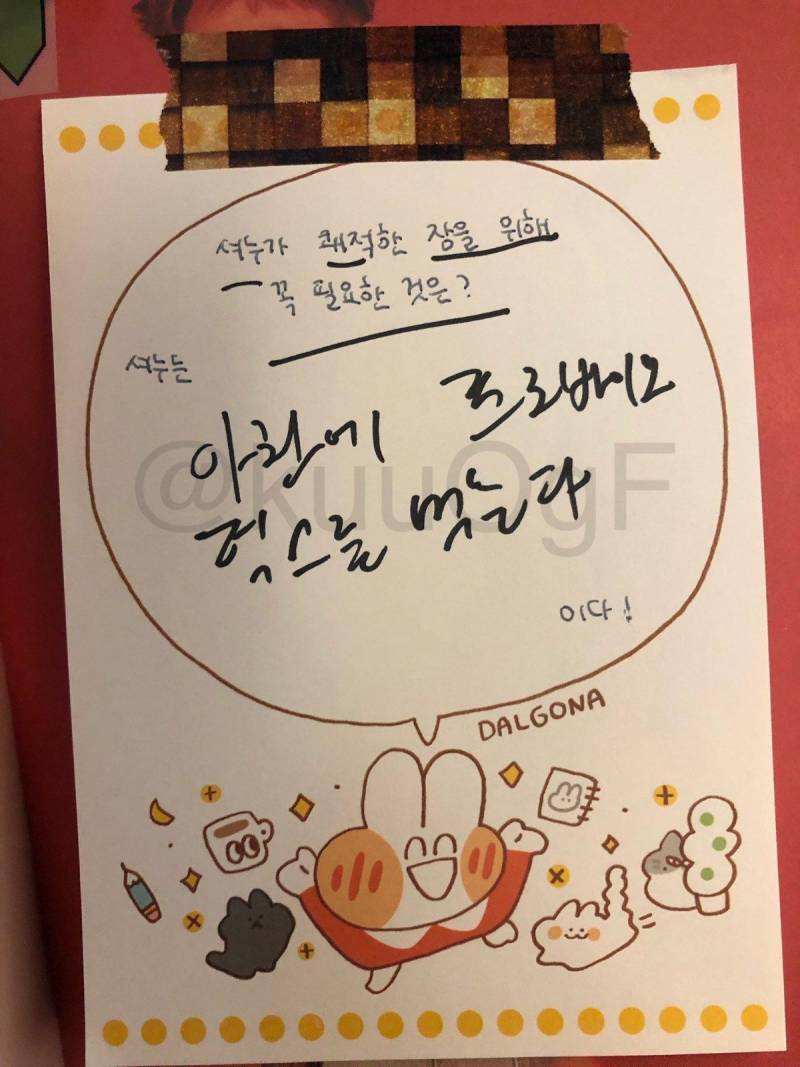 셔누가 쾌적한 장을 위해
꼭 필요한 것은?
셔누는
아침에 프로바이오
틱스를 먹는다
이다!
@kuuOgF
DALGONA